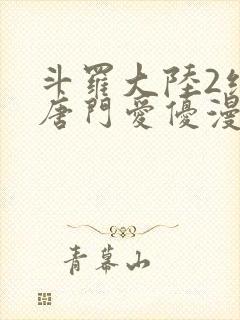 斗羅大陸2
唐門愛優漫
青幕山